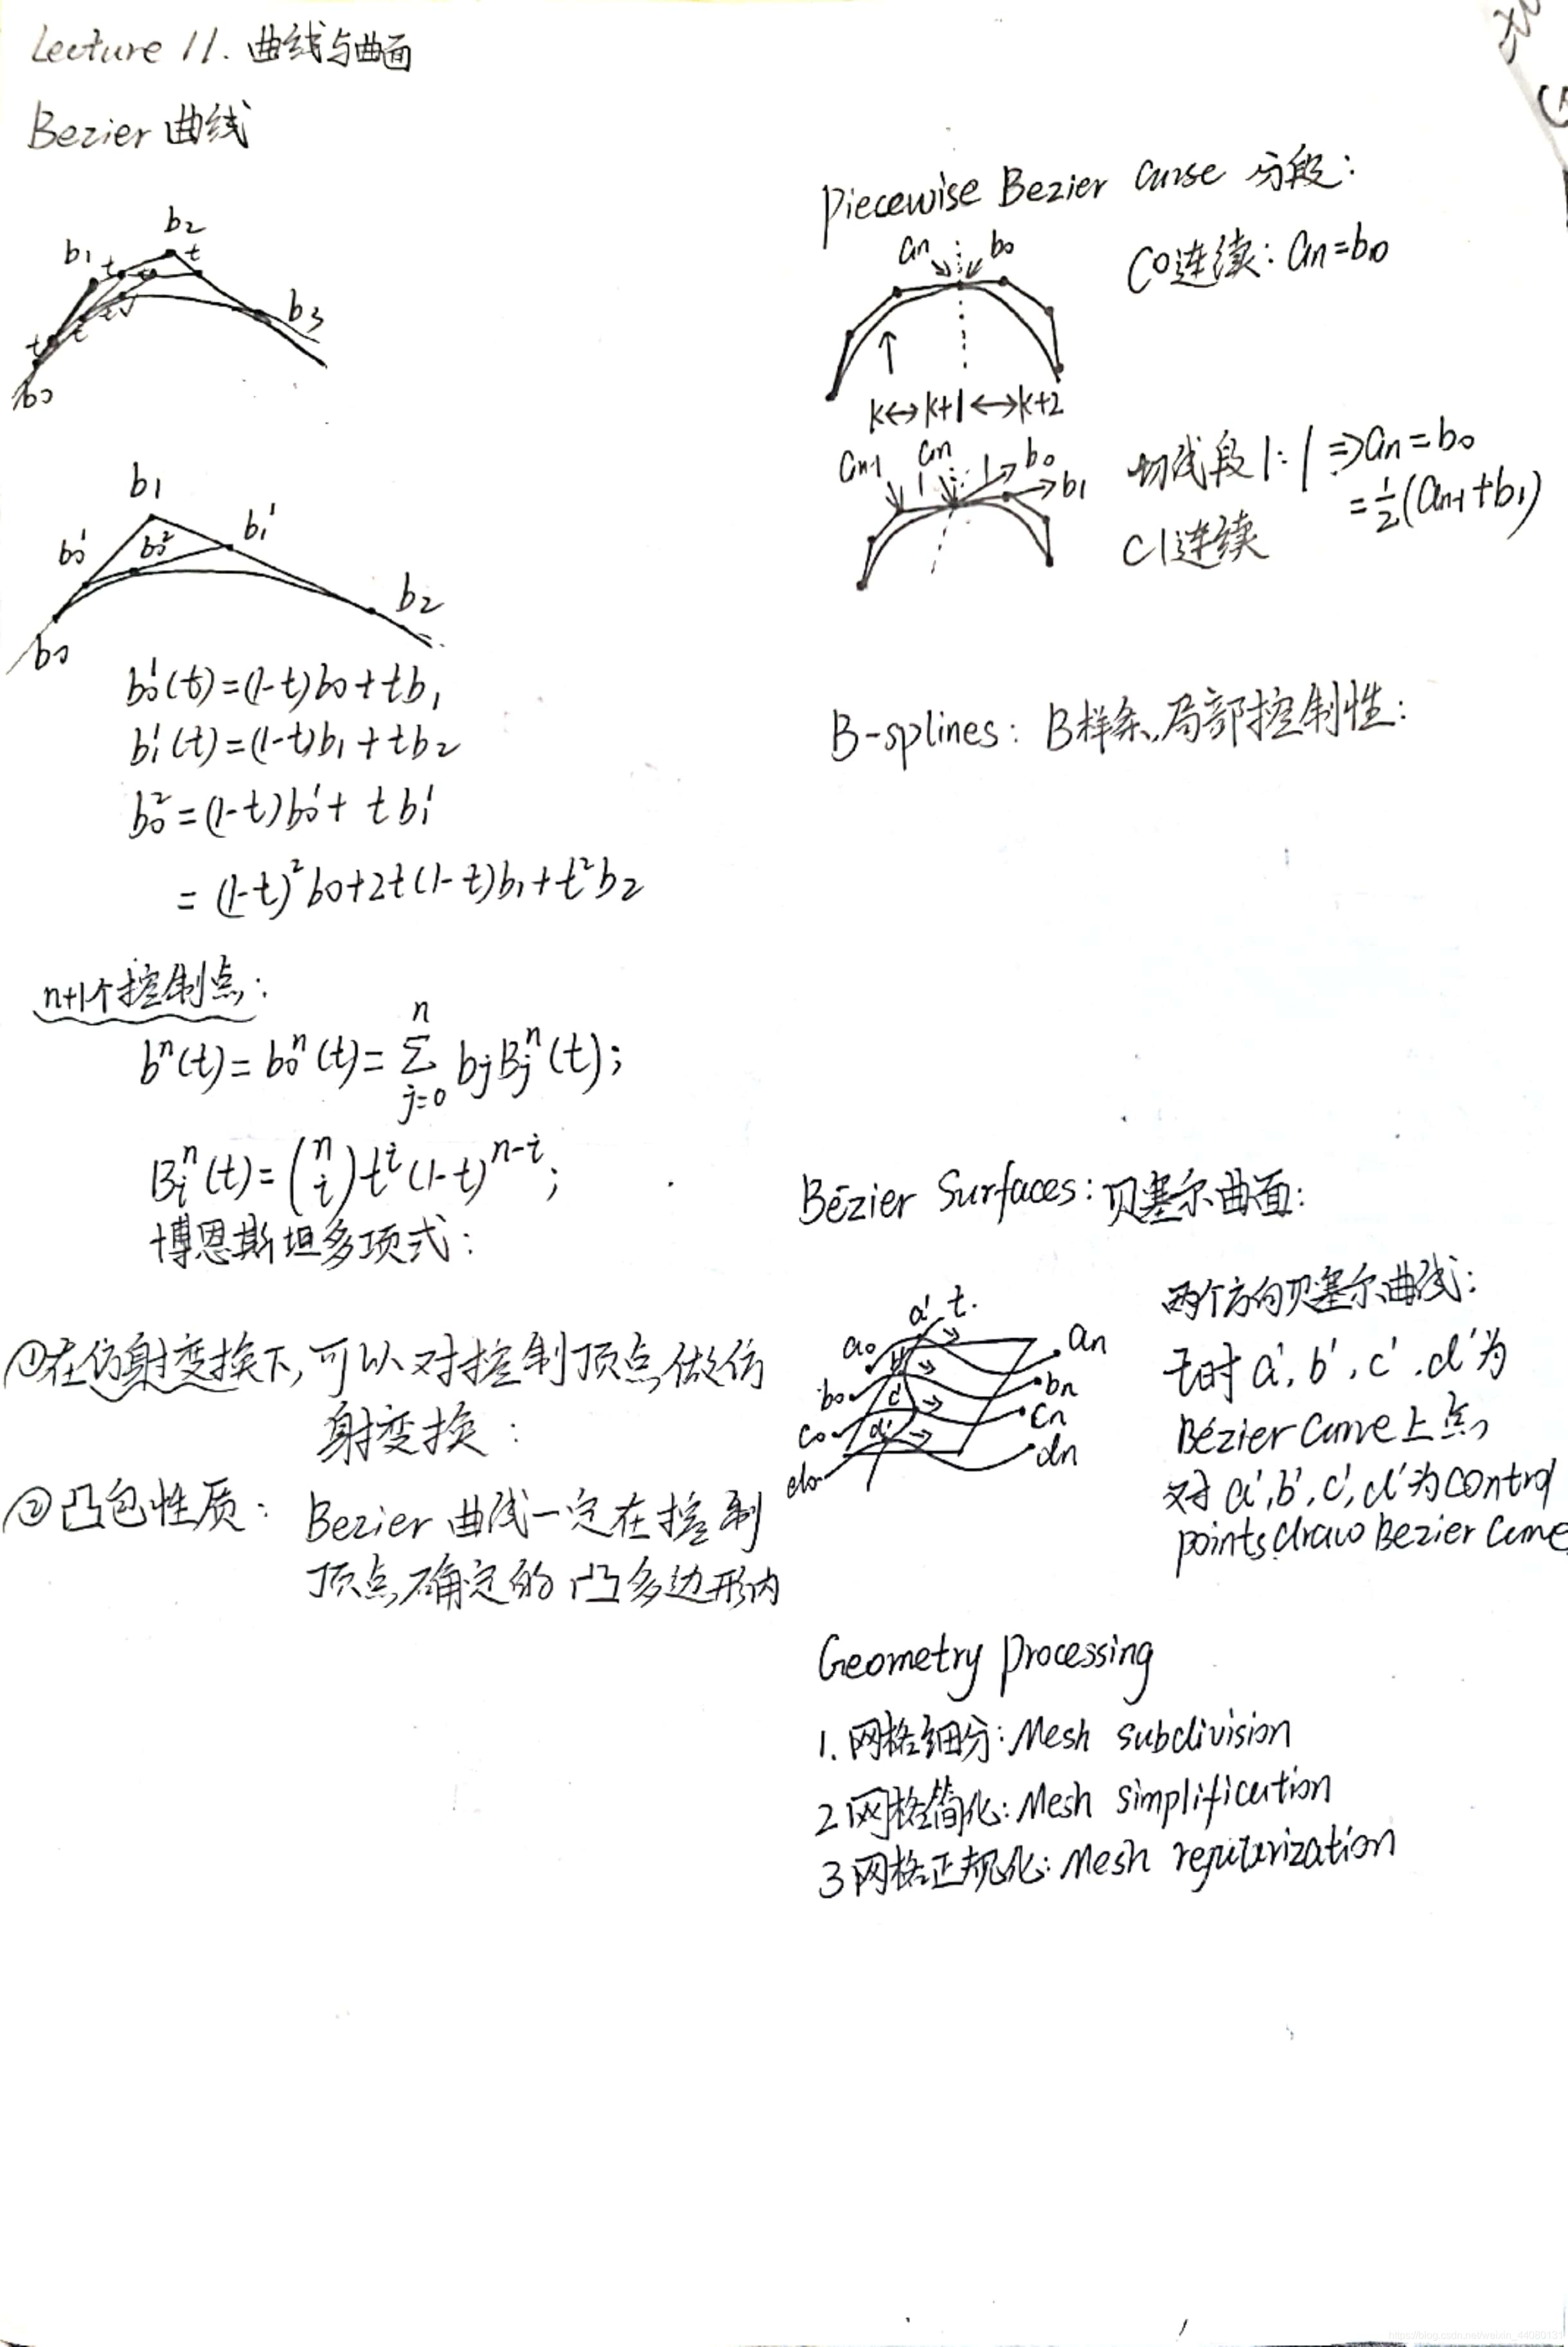 Lecture 11. 曲线与曲面
Bezier 曲线
b2
b1
t
t
t
t
t
b3
b0
b1
b0¹
b0²
b1¹
b2
b0
b0¹(t)=(1-t)b0+tb1
b1¹(t)=(1-t)b1+tb2
b0²=(1-t)b0¹+tb1¹
=(1-t)²b0+2t(1-t)b1+t²b2
n+1个控制点:
bⁿ(t)=b0ⁿ(t)=∑ⁿⱼ₌₀ bjBjⁿ(t);
Biⁿ(t)=(n i)tⁱ(1-t)ⁿ⁻ⁱ;
博恩斯坦多项式:
①在仿射变换下,可以对控制顶点做仿
射变换:
②凸包性质: Bezier 曲线一定在控制
顶点确定的凸多边形内
Piecewise Bezier Curse 分段:
an b0
C0连续: an=b0
k↔k+1↔k+2
an-1 an 1 1 b0 b1
切线段1:1⇒an=b0
=½(an-1+b1)
C1连续
B-splines: B样条,局部控制性:
Bézier Surfaces: 贝塞尔曲面:
a' t.
a0 an
b0 bn
c0 c' cn
d0 d' dn
两个方向贝塞尔曲线:
t时 a', b', c', d'为
Bézier Curve上点,
对 a', b', c', d'为control
points draw Bezier Curve
Geometry Processing
1. 网格细分: Mesh subdivision
2 网格简化: Mesh simplification
3 网格正规化: Mesh regularization